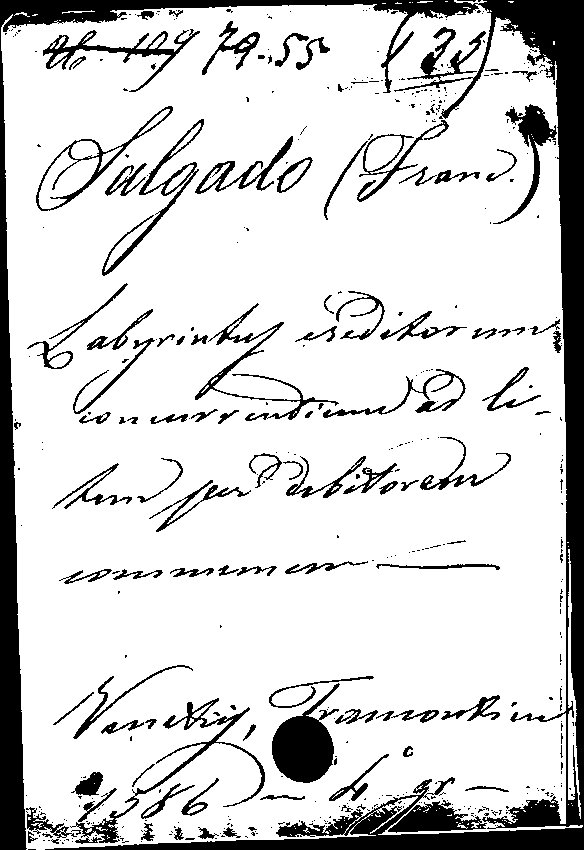 79-55 (33)
Salgado (Franc.)
Labyrintus creditorum
concurrentium ad li-
tem per debitorem
communem —
Venetiis, Tramontini
1586 — 4° gr —